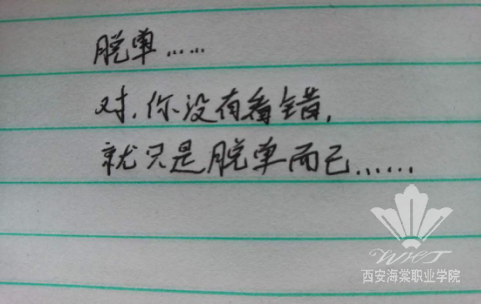 脱单……
对，你没有看错，
就只是脱单而已……
WHT
西安海棠职业学院